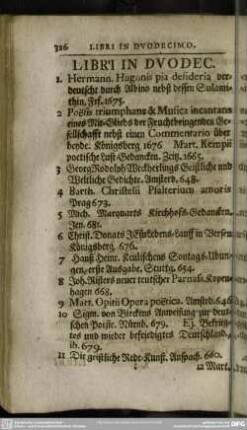 326 LIBRI IN DUODECIMO.
LIBRI IN DVODEC.
1. Hermann. Hugonis pia desideria ver-
deutscht durch Albino nebst dessen Sulami-
thin, Frf. 1675.
2 Poësis triumphans & Musica incantans
eines Mit-Glieds der Fruchtbringenden Ge-
sellschafft nebst einen Commentario über
beyde. Königsberg 1676 Mart. Kempii
poetische Lust-Gedancken. Zeitz. 1665.
3 Georg Rodolph Weckherlings Geistliche und
Weltliche Gedichte. Amsterd. 648.
4 Barth. Christelii Psalterium amoris
Prag 673.
5 Mich. Marquarts Kirchhofs-Gedancken.
Jen. 681.
6 Christ. Donats JEsus lebens-Lauff in Versen
Königsberg. 676.
7 Hanß Heinr. Keulischens Sontags-Ubun-
gen, erste Ausgabe, Stuttg. 654.
8 Joh. Risters neuer teutscher Parnass. Kopen-
hagen 668.
9 Mart. Opitii Opera poëtica. Amstrd. 646
10 Sigm. von Birckens Anweisung zur deut-
schen Poësie. Nürnb. 679. Ej. Bekrieg-
tes und wieder befriedigtes Deutschland,
ib. 679.
11 Die geistliche Rede-Kunst. Anspach. 660.
12 Mart.